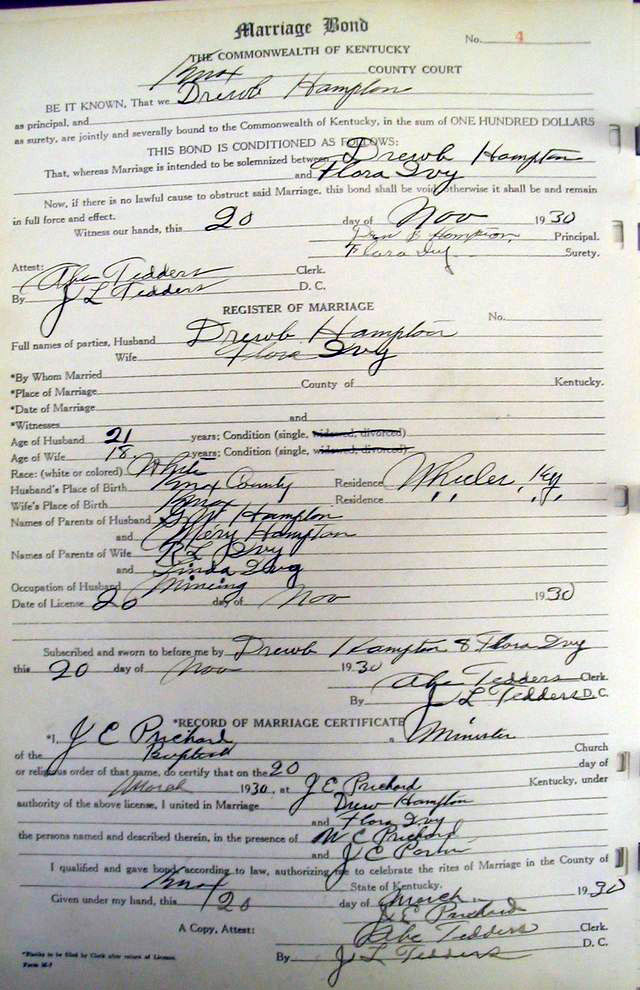 Marriage Bond
No. 4
THE COMMONWEALTH OF KENTUCKY
Knox COUNTY COURT
BE IT KNOWN, That we Drewb Hampton
as principal, and
as surety, are jointly and severally bound to the Commonwealth of Kentucky, in the sum of ONE HUNDRED DOLLARS
THIS BOND IS CONDITIONED AS FOLLOWS:
That, whereas Marriage is intended to be solemnized between Drewb Hampton
and Flora Ivy
Now, if there is no lawful cause to obstruct said Marriage, this bond shall be void, otherwise it shall be and remain
in full force and effect.
Witness our hands, this 20 day of Nov 1930
Hampton Principal.
Flora Ivy Surety.
Attest:
Abe Tedders Clerk.
By J L Tedders D. C.
REGISTER OF MARRIAGE
No.
Full names of parties, Husband Drewb Hampton
Wife Flora Ivy
*By Whom Married
*Place of Marriage County of Kentucky.
*Date of Marriage
*Witnesses and
Age of Husband 21 years; Condition (single, widowed, divorced)
Age of Wife 18 years; Condition (single, widowed, divorced)
Race: (white or colored) White
Husband's Place of Birth Knox County Residence Wheeler, Ky
Wife's Place of Birth Knox Residence " " "
Names of Parents of Husband Hampton
and Mery Hampton
Names of Parents of Wife R L Ivy
and Linda Ivy
Occupation of Husband Mincing
Date of License 20 day of Nov 1930
Subscribed and sworn to before me by Drewb Hampton & Flora Ivy
this 20 day of Nov 1930
Abe Tedders Clerk
By J L Tedders D. C.
*RECORD OF MARRIAGE CERTIFICATE
*I, J C Prichard a Minister
of the Baptist Church
or religious order of that name, do certify that on the 20 day of
March 1930, at J C Prichard Kentucky, under
authority of the above license, I united in Marriage Drew Hampton
and Flora Ivy
the persons named and described therein, in the presence of W C Prichard
and J C
I qualified and gave bond according to law, authorizing me to celebrate the rites of Marriage in the County of
Knox State of Kentucky.
Given under my hand, this 20 day of March 1930
J C Prichard
A Copy, Attest: Abe Tedders Clerk.
By J L Tedders D. C.
*Blanks to be filled by Clerk after return of License.
Form M-7